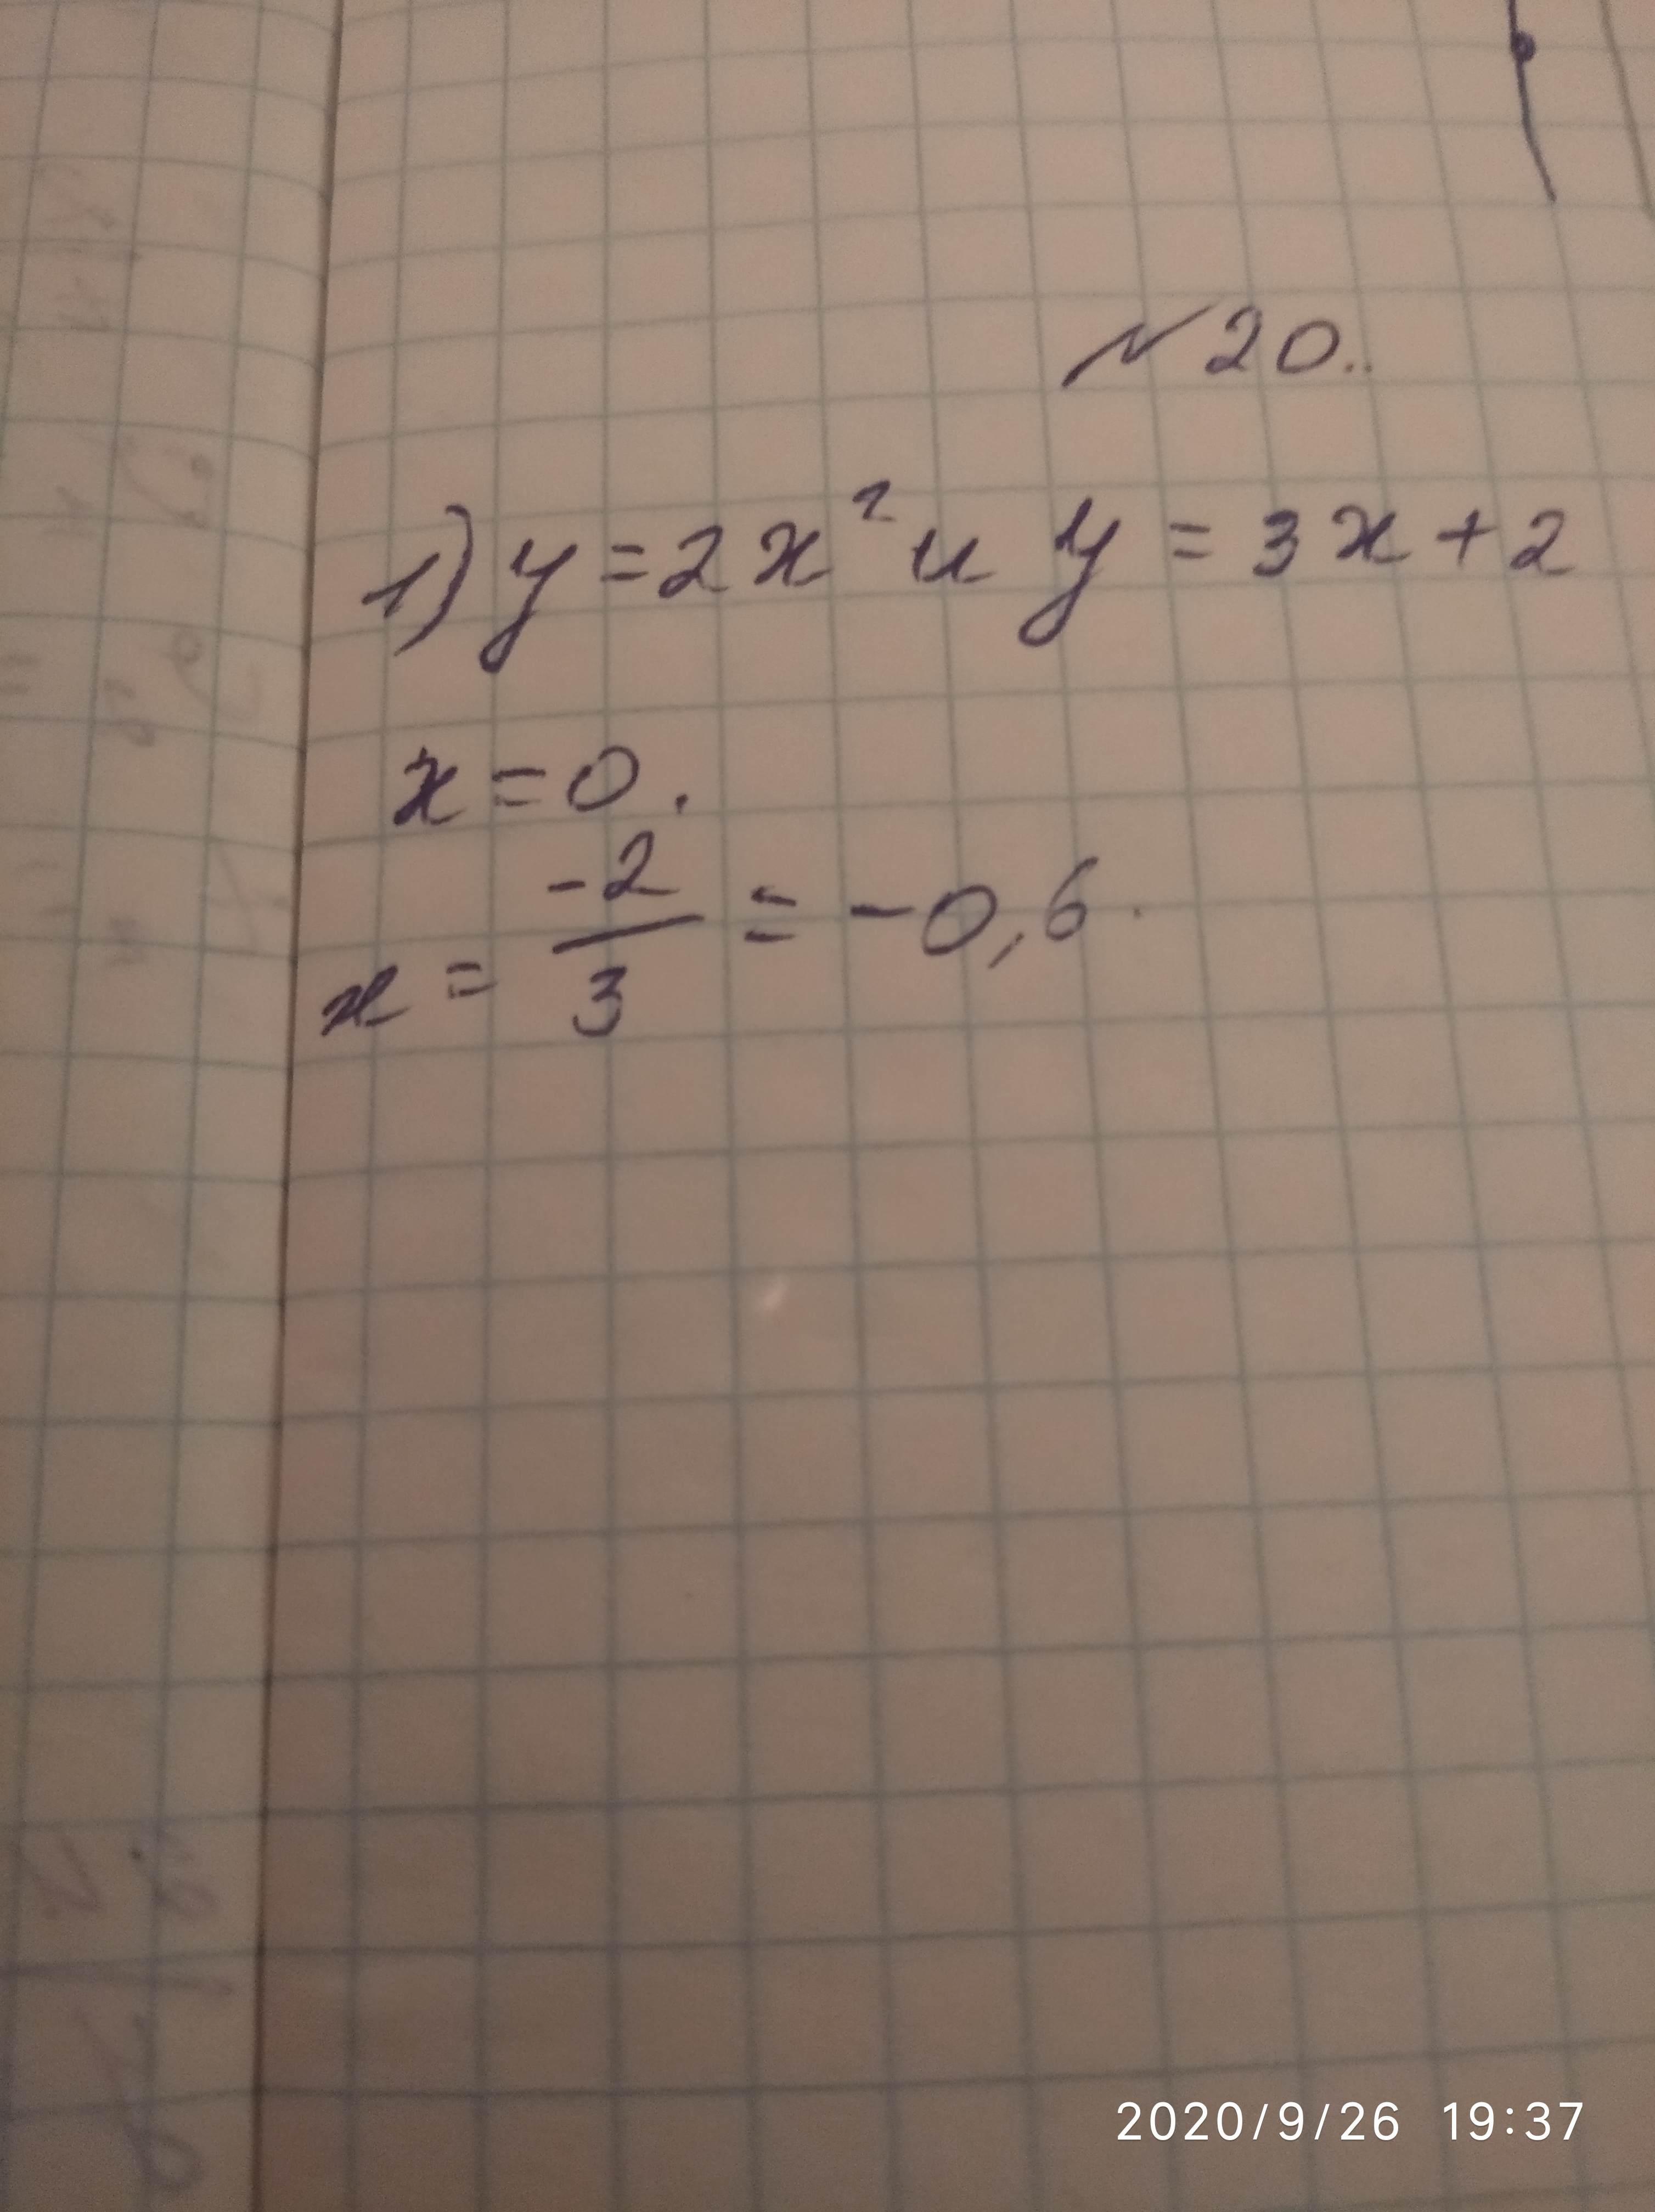 № 20..
1) y = 2x² и y = 3x + 2
x = 0.
x = -2/3 = -0,6.
2020/9/26 19:37